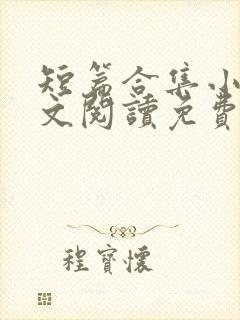 短篇合集小
文閱讀免費
程寶懷